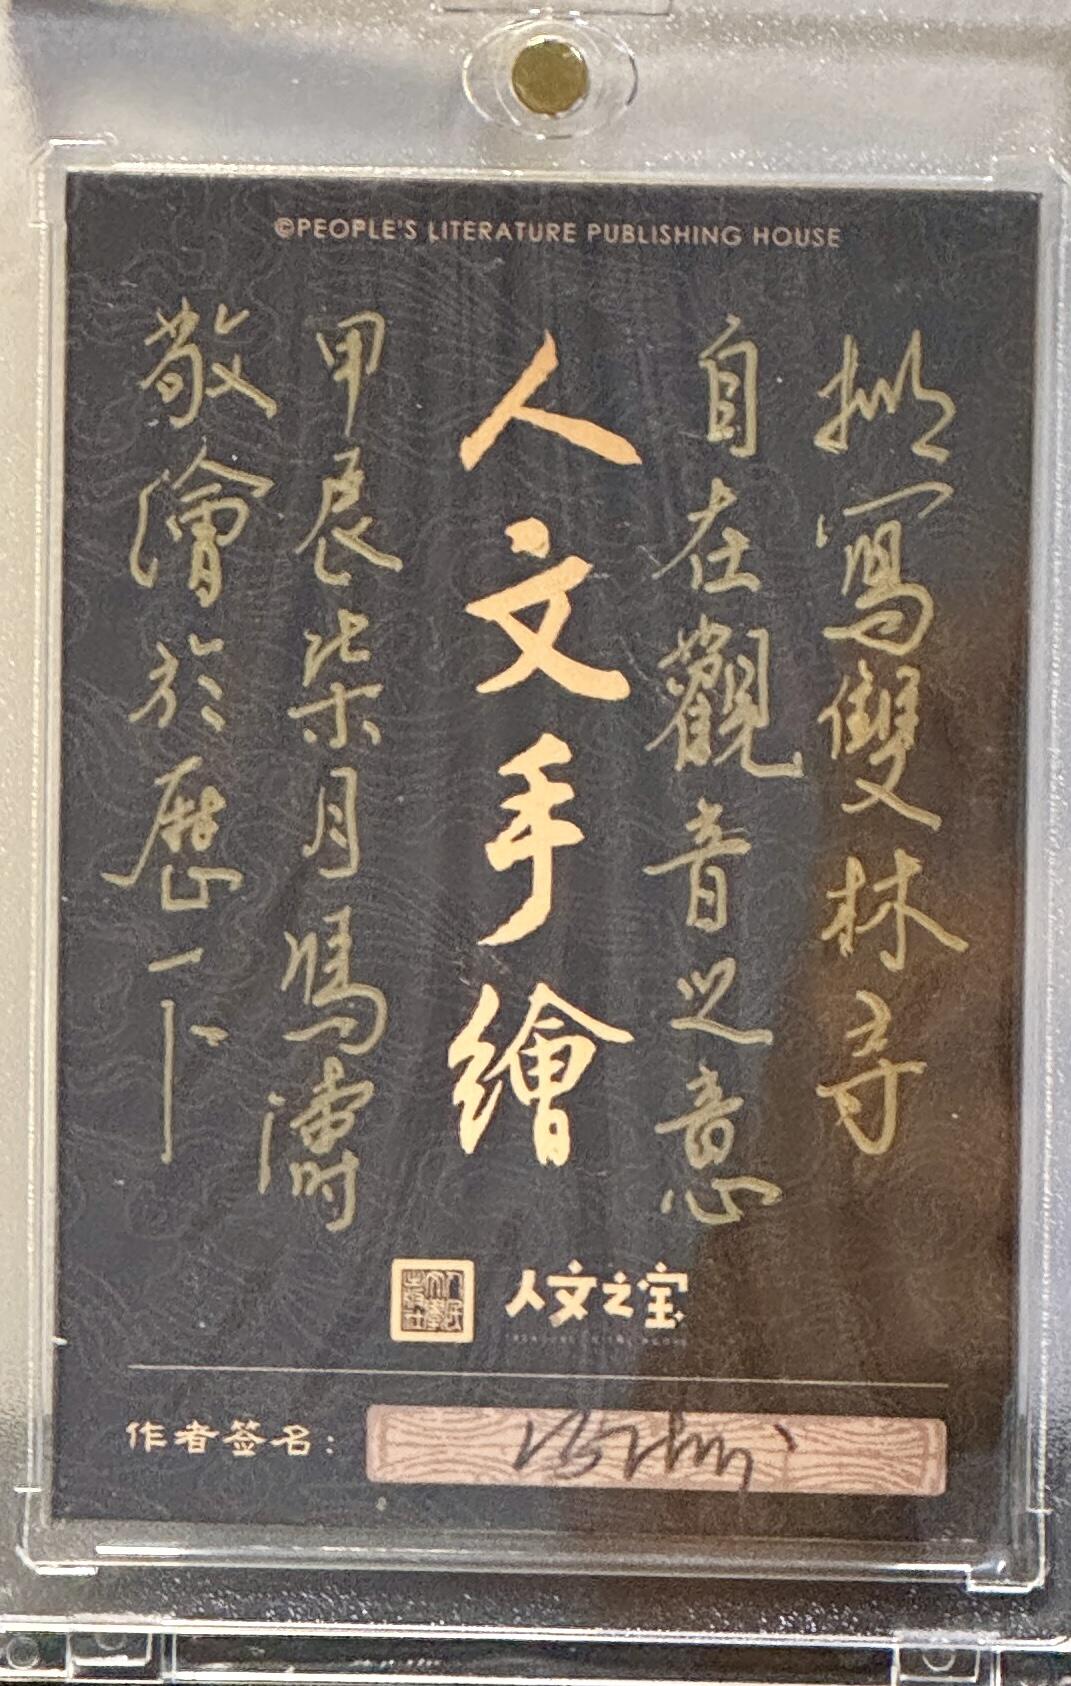 ©PEOPLE'S LITERATURE PUBLISHING HOUSE
拟寫雙林寺
自在觀音之意
人文手繪
甲辰柒月馮濤
敬繪於歷下
人民文學出版社
人文之宝
作者签名：